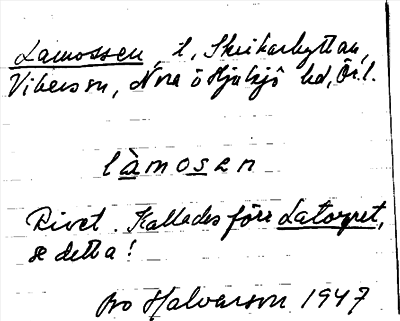 Lamossen, t, Skrikarhyttan,
Vikers sn, Nora o Hjulsjö hd, Ör. l.
làmosen
Rivet. Kallades förr Latorpet,
se detta!
Bo Halvarson 1947